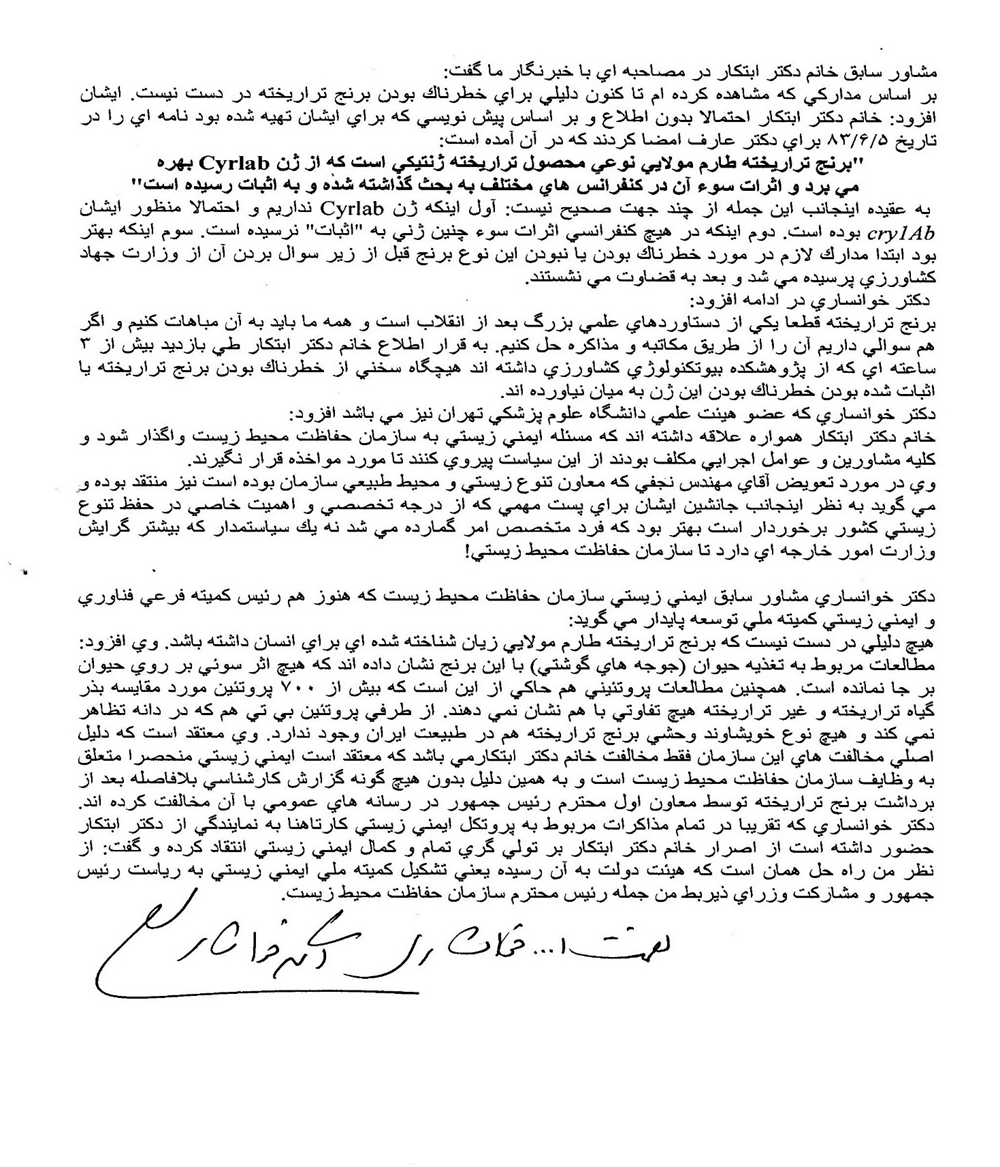 مشاور سابق خانم دكتر ابتكار در مصاحبه اي با خبرنگار ما گفت:
بر اساس مداركي كه مشاهده كرده ام تا كنون دليلي براي خطرناك بودن برنج تراريخته در دست نيست. ايشان
افزود: خانم دكتر ابتكار احتمالا بدون اطلاع و بر اساس پيش نويسي كه براي ايشان تهيه شده بود نامه اي را در
تاريخ ۸۳/۶/۵ براي دكتر عارف امضا كردند كه در آن آمده است:
"برنج تراريخته طارم مولايي نوعي محصول تراريخته ژنتيكي است كه از ژن Cyrlab بهره
مي برد و اثرات سوء آن در كنفرانس هاي مختلف به بحث گذاشته شده و به اثبات رسيده است"
به عقيده اينجانب اين جمله از چند جهت صحيح نيست: آول اينكه ژن Cyrlab نداريم و احتمالا منظور ايشان
cry1Ab بوده است. دوم اينكه در هيچ كنفرانسي اثرات سوء چنين ژني به "اثبات" نرسيده است. سوم اينكه بهتر
بود ابتدا مدارك لازم در مورد خطرناك بودن يا نبودن اين نوع برنج قبل از زير سوال بردن آن از وزارت جهاد
كشاورزي پرسيده مي شد و بعد به قضاوت مي نشستند.
دكتر خوانساري در ادامه افزود:
برنج تراريخته قطعا يكي از دستاوردهاي علمي بزرگ بعد از انقلاب است و همه ما بايد به آن مباهات كنيم و اگر
هم سوالي داريم آن را از طريق مكاتبه و مذاكره حل كنيم. به قرار اطلاع خانم دكتر ابتكار طي بازديد بيش از ۳
ساعته اي كه از پژوهشكده بيوتكنولوژي كشاورزي داشته اند هيچگاه سخني از خطرناك بودن برنج تراريخته يا
اثبات شده بودن خطرناك بودن اين ژن به ميان نياورده اند.
دكتر خوانساري كه عضو هيئت علمي دانشگاه علوم پزشكي تهران نيز مي باشد افزود:
خانم دكتر ابتكار همواره علاقه داشته اند كه مسئله ايمني زيستي به سازمان حفاظت محيط زيست واگذار شود و
كليه مشاورين و عوامل اجرايي مكلف بودند از اين سياست پيروي كنند تا مورد مواخذه قرار نگيرند.
وي در مورد تعويض آقاي مهندس نجفي كه معاون تنوع زيستي و محيط طبيعي سازمان بوده است نيز منتقد بوده و
مي گويد به نظر اينجانب جانشين ايشان براي پست مهمي كه از درجه تخصصي و اهميت خاصي در حفظ تنوع
زيستي كشور برخوردار است بهتر بود كه فرد متخصص امر گمارده مي شد نه يك سياستمدار كه بيشتر گرايش
وزارت امور خارجه اي دارد تا سازمان حفاظت محيط زيستي!
دكتر خوانساري مشاور سابق ايمني زيستي سازمان حفاظت محيط زيست كه هنوز هم رئيس كميته فرعي فناوري
و ايمني زيستي كميته ملي توسعه پايدار مي گويد:
هيچ دليلي در دست نيست كه برنج تراريخته طارم مولايي زيان شناخته شده اي براي انسان داشته باشد. وي افزود:
مطالعات مربوط به تغذيه حيوان (جوجه هاي گوشتي) با اين برنج نشان داده اند كه هيچ اثر سوئي بر روي حيوان
بر جا نمانده است. همچنين مطالعات پروتئيني هم حاكي از اين است كه بيش از ۷۰۰ پروتئين مورد مقايسه بذر
گياه تراريخته و غير تراريخته هيچ تفاوتي با هم نشان نمي دهند. از طرفي پروتئين بي تي هم كه در دانه تظاهر
نمي كند و هيچ نوع خويشاوند وحشي برنج تراريخته هم در طبيعت ايران وجود ندارد. وي معتقد است كه دليل
اصلي مخالفت هاي اين سازمان فقط مخالفت خانم دكتر ابتكارمي باشد كه معتقد است ايمني زيستي منحصرا متعلق
به وظايف سازمان حفاظت محيط زيست است و به همين دليل بدون هيچ گونه گزارش كارشناسي بلافاصله بعد از
برداشت برنج تراريخته توسط معاون اول محترم رئيس جمهور در رسانه هاي عمومي با آن مخالفت كرده اند.
دكتر خوانساري كه تقريبا در تمام مذاكرات مربوط به پروتكل ايمني زيستي كارتاهنا به نمايندگي از دكتر ابتكار
حضور داشته است از اصرار خانم دكتر ابتكار بر تولي گري تمام و كمال ايمني زيستي انتقاد كرده و گفت: از
نظر من راه حل همان است كه هيئت دولت به آن رسيده يعني تشكيل كميته ملي ايمني زيستي به رياست رئيس
جمهور و مشاركت وزراي ذيربط من جمله رئيس محترم سازمان حفاظت محيط زيست.